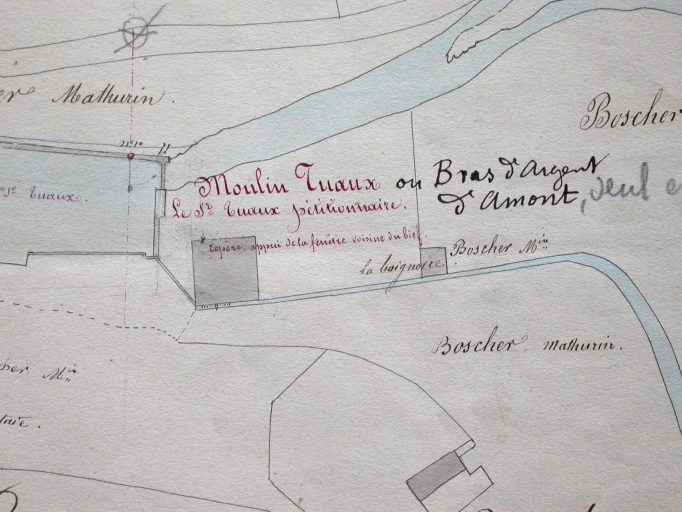 er Mathurin.
Boscher
n°1°
Sr. Tuaux.
Moulin Tuaux ou Bras d'Argent
d'Amont,
Le Sr. Tuaux pétitionnaire.
repère appui de la fenêtre voisine du bief.
la baignoire
Boscher Min
Boscher. mathurin.
cher Min